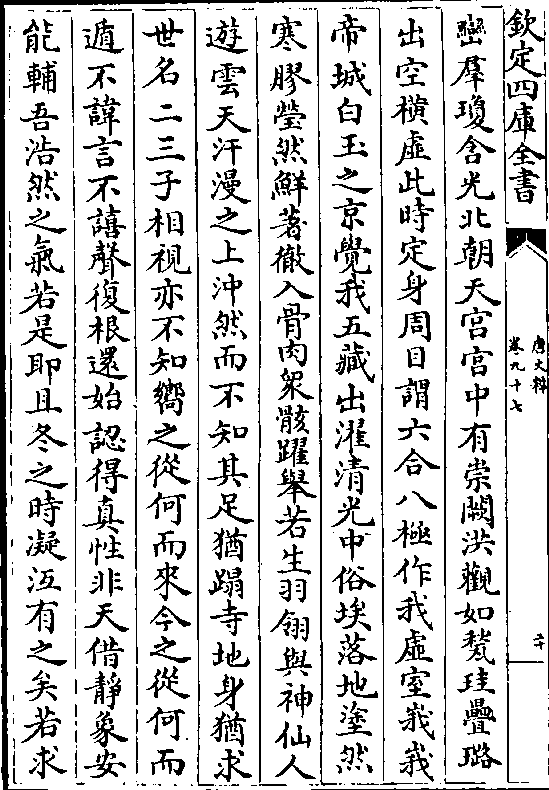 欽定四庫全書
唐文粹
卷九十七
二十
巒羣瓊含光北朝天宮宮中有崇闕洪觀如甃珪疊璐
出空橫虛此時定身周目謂六合八極作我虛室峩峩
帝城白玉之京覺我五藏出濯清光中俗埃落地塗然
寒膠瑩然鮮著徹入骨肉衆骸躍舉若生羽翎與神仙人
遊雲天汗漫之上沖然而不知其足猶蹋寺地身猶求
世名二三子相視亦不知嚮之從何而來今之從何而
遁不諱言不譆聲復根還始認得真性非天借靜象安
能輔吾浩然之氣若是耶且冬之時凝沍有之矣若求